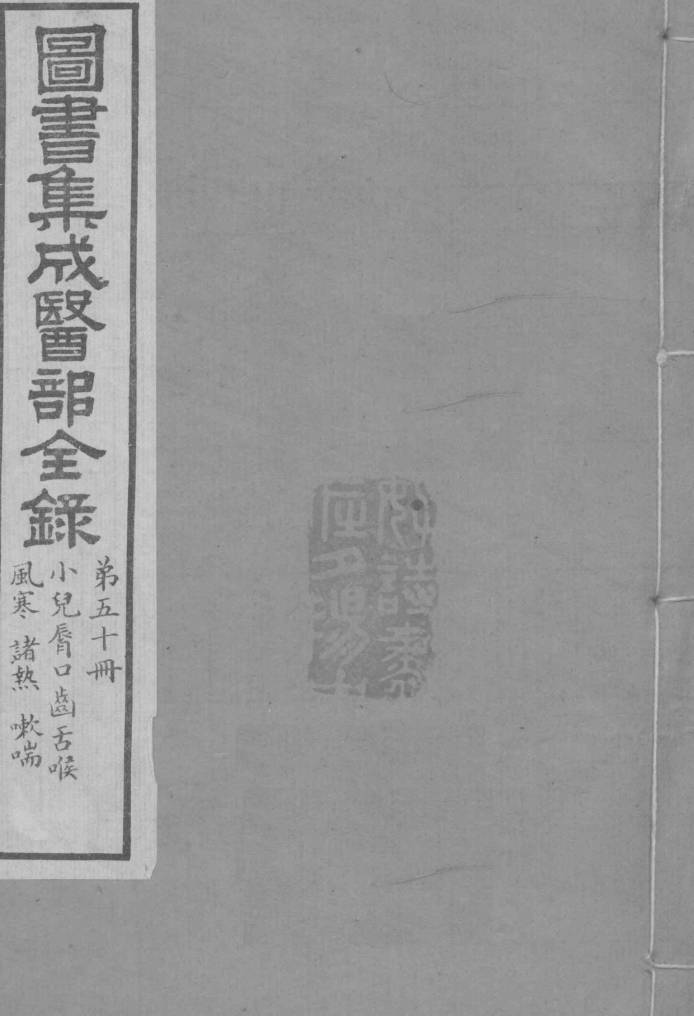 圖書集成醫部全錄
弟五十冊
小兒脣口齒舌喉
風寒 諸熱 嗽喘